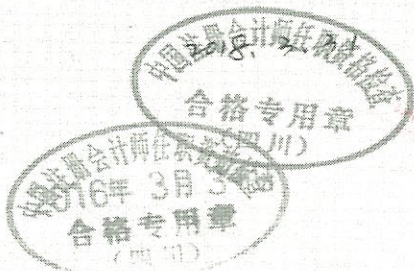 中国注册会计师任职资格检查
2018.
合格专用章
(四川)
中国注册会计师任职资格检查
2016年 3月
合格专用章
(四川)